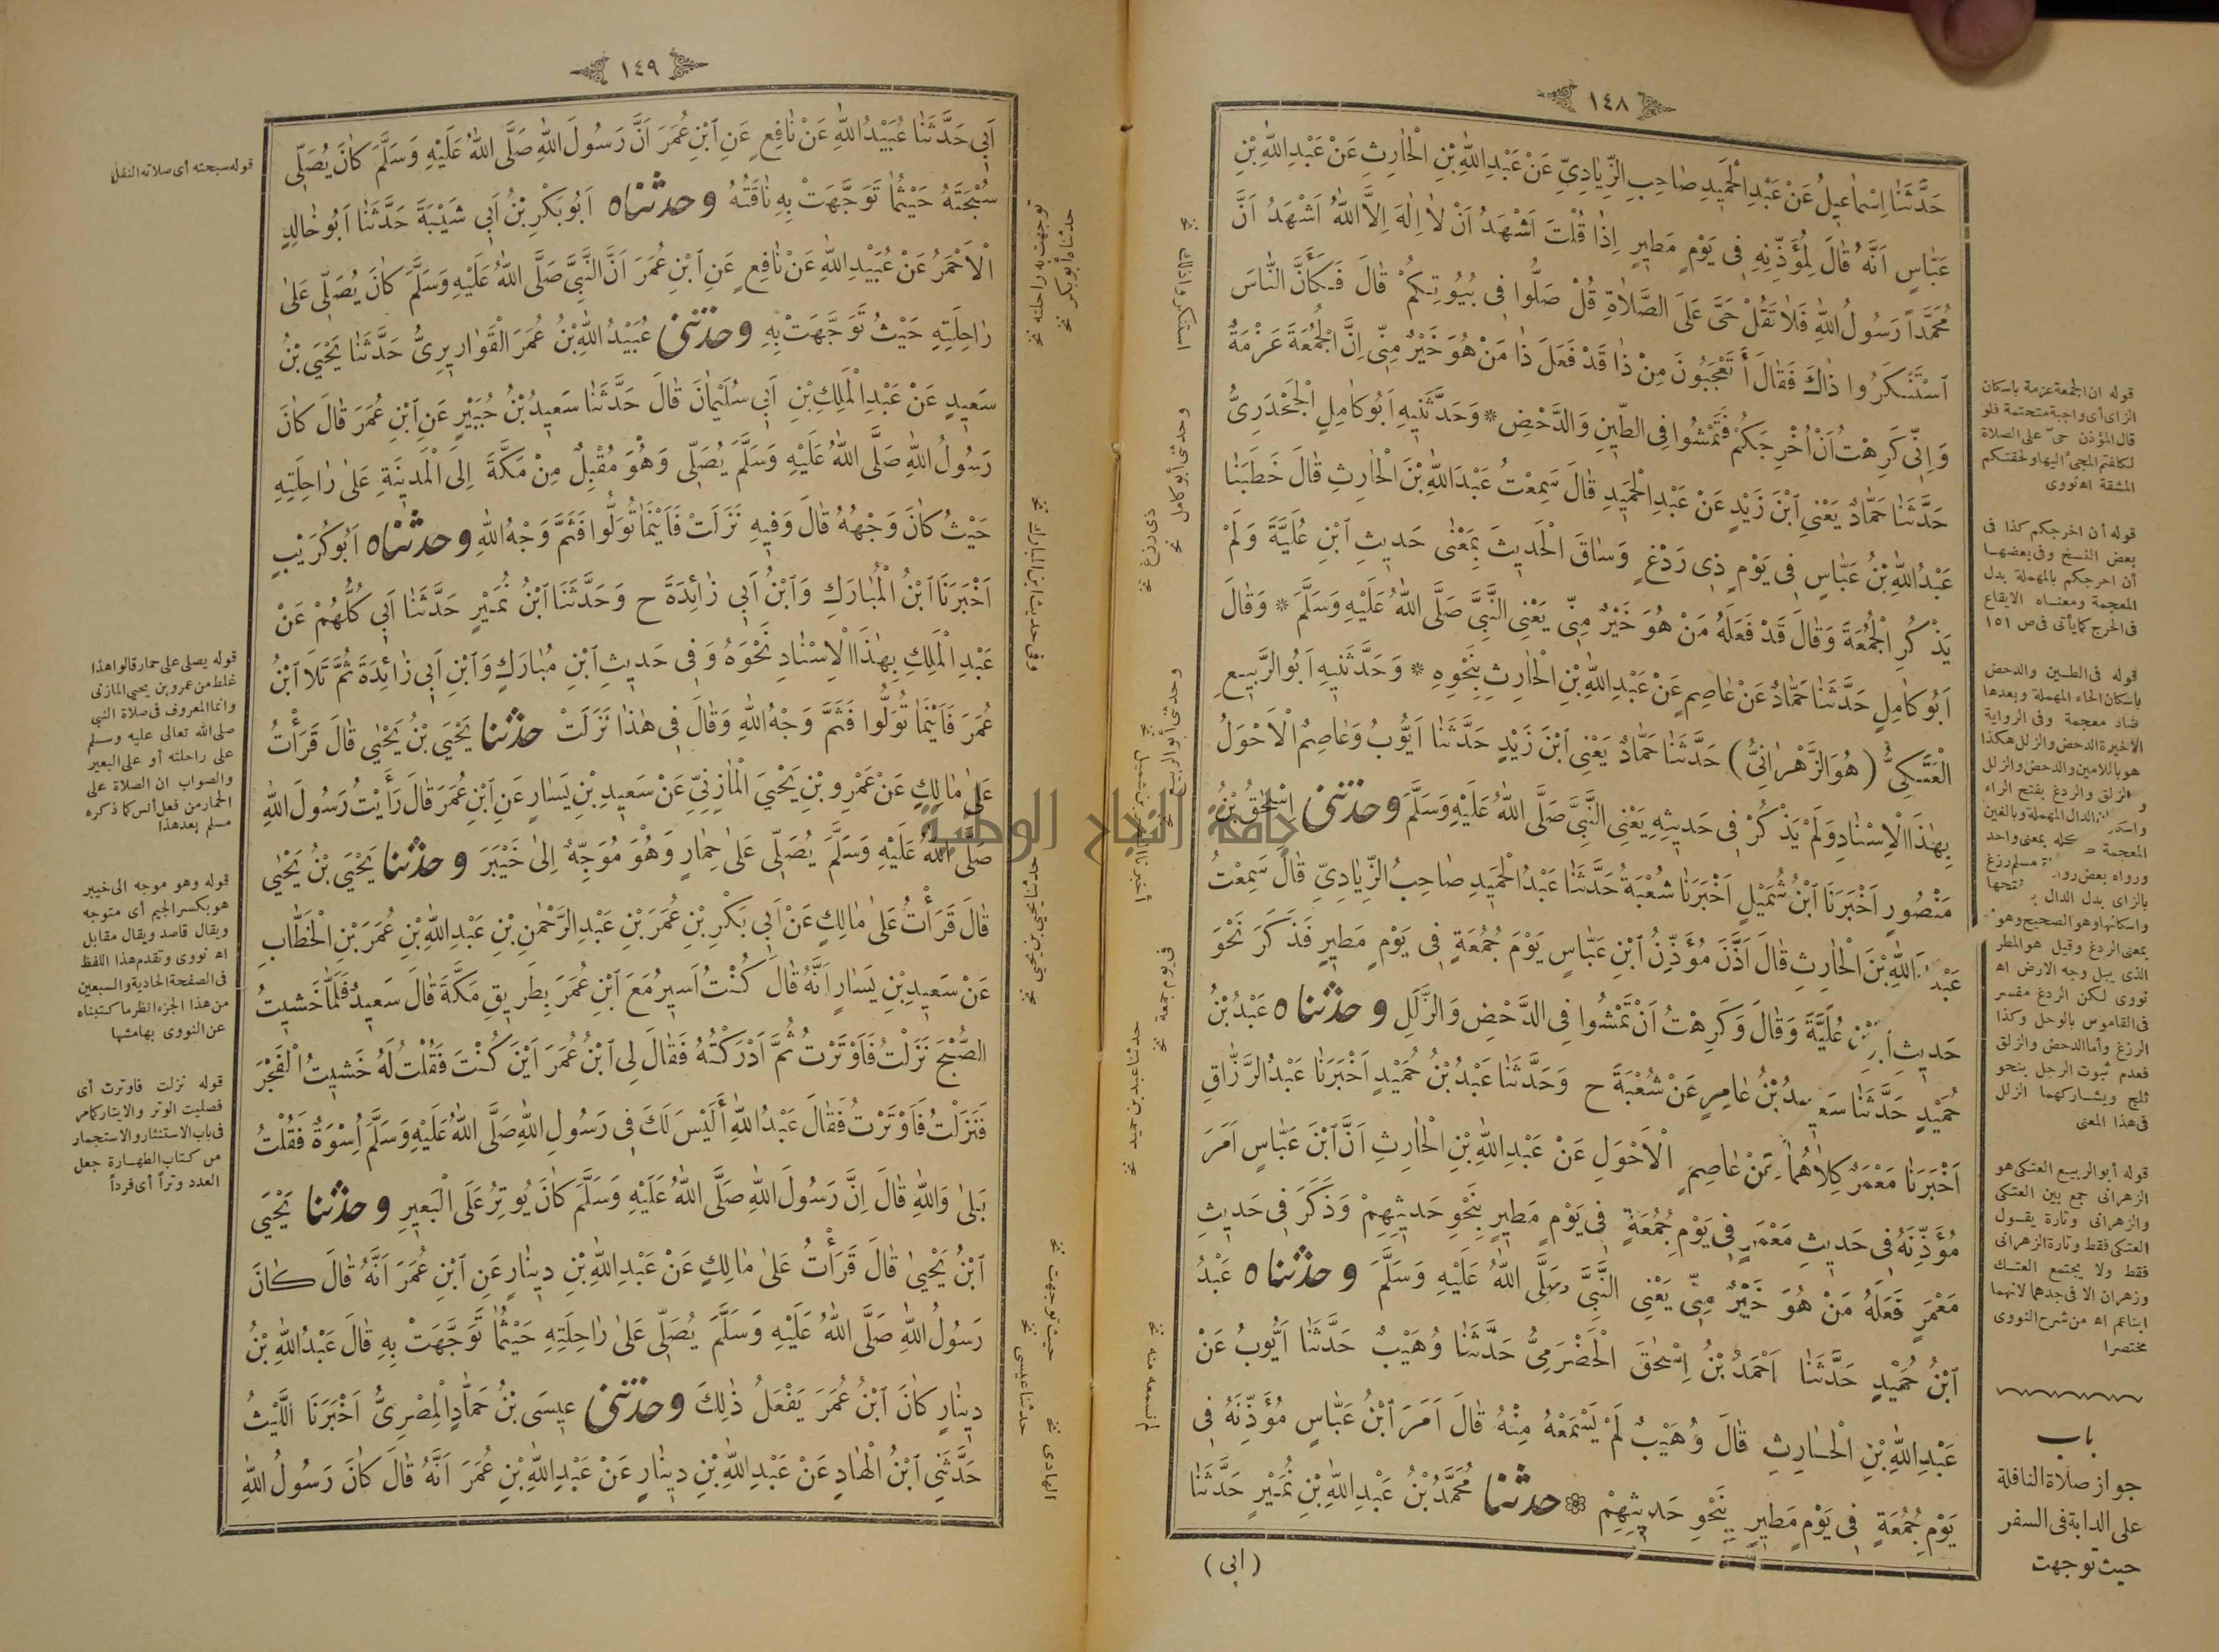 ١٤٨
حَدَّثَنَا اِسْمَاعِيلُ عَنْ عَبْدِ الْحَمِيدِ صَاحِبِ الزِّيَادِيِّ عَنْ عَبْدِ اللّٰهِ بْنِ الْحَارِثِ عَنْ عَبْدِ اللّٰهِ بْنِ
عَبَّاسٍ اَنَّهُ قَالَ لِمُؤَذِّنِهِ فِى يَوْمٍ مَطِيرٍ اِذَا قُلْتَ اَشْهَدُ اَنْ لَا اِلٰهَ اِلَّا اللّٰهُ اَشْهَدُ اَنَّ
مُحَمَّداً رَسُولُ اللّٰهِ فَلَا تَقُلْ حَىَّ عَلَى الصَّلَاةِ قُلْ صَلُّوا فِى بُيُوتِكُمْ قَالَ فَكَأَنَّ النَّاسَ
اَسْتَنْكَرُوا ذَاكَ فَقَالَ أَتَعْجَبُونَ مِنْ ذَا قَدْ فَعَلَ ذَا مَنْ هُوَ خَيْرٌ مِنِّى اِنَّ الْجُمُعَةَ عَزْمَةٌ
وَاِنِّى كَرِهْتُ اَنْ اُخْرِجَكُمْ فَتَمْشُوا فِى الطِّينِ وَالدَّحْضِ * وَحَدَّثَنِيهِ اَبُو كَامِلٍ الْجَحْدَرِىُّ
حَدَّثَنَا حَمَّادٌ يَعْنِى اَبْنَ زَيْدٍ عَنْ عَبْدِ الْحَمِيدِ قَالَ سَمِعْتُ عَبْدَ اللّٰهِ بْنَ الْحَارِثِ قَالَ خَطَبَنَا
عَبْدُ اللّٰهِ بْنُ عَبَّاسٍ فِى يَوْمٍ ذِى رَدْغٍ وَسَاقَ الْحَدِيثَ بِمَعْنَى حَدِيثِ اَبْنِ عُلَيَّةَ وَلَمْ
يَذْكُرِ الْجُمُعَةَ وَقَالَ قَدْ فَعَلَهُ مَنْ هُوَ خَيْرٌ مِنِّى يَعْنِى النَّبِىَّ صَلَّى اللّٰهُ عَلَيْهِ وَسَلَّمَ * وَقَالَ
اَبُو كَامِلٍ حَدَّثَنَا حَمَّادٌ عَنْ عَاصِمٍ عَنْ عَبْدِ اللّٰهِ بْنِ الْحَارِثِ بِنَحْوِهِ * وَحَدَّثَنِيهِ اَبُو الرَّبِيعِ
الْعَتَكِىُّ (هُوَ الزَّهْرَانِىُّ) حَدَّثَنَا حَمَّادٌ يَعْنِى اَبْنَ زَيْدٍ حَدَّثَنَا اَيُّوبُ وَعَاصِمٌ الْاَحْوَلُ
بِهٰذَا الْاِسْنَادِ وَلَمْ يَذْكُرْ فِى حَدِيثِهِ يَعْنِى النَّبِىَّ صَلَّى اللّٰهُ عَلَيْهِ وَسَلَّمَ وحدثنى اِسْحٰقُ بْنُ
مَنْصُورٍ اَخْبَرَنَا اَبْنُ شُمَيْلٍ اَخْبَرَنَا شُعْبَةُ حَدَّثَنَا عَبْدُ الْحَمِيدِ صَاحِبُ الزِّيَادِيِّ قَالَ سَمِعْتُ
عَبْدَ اللّٰهِ بْنَ الْحَارِثِ قَالَ اَذَّنَ مُؤَذِّنُ اَبْنِ عَبَّاسٍ يَوْمَ جُمُعَةٍ فِى يَوْمٍ مَطِيرٍ فَذَكَرَ نَحْوَ
حَدِيثِ اَبْنِ عُلَيَّةَ وَقَالَ وَكَرِهْتُ اَنْ تَمْشُوا فِى الدَّحْضِ وَالزَّلَلِ وحدثناه عَبْدُ بْنُ
حُمَيْدٍ حَدَّثَنَا سَعِيدُ بْنُ عَامِرٍ عَنْ شُعْبَةَ ح وَحَدَّثَنَا عَبْدُ بْنُ حُمَيْدٍ اَخْبَرَنَا عَبْدُ الرَّزَّاقِ
اَخْبَرَنَا مَعْمَرٌ كِلَاهُمَا عَنْ عَاصِمٍ الْاَحْوَلِ عَنْ عَبْدِ اللّٰهِ بْنِ الْحَارِثِ اَنَّ اَبْنَ عَبَّاسٍ اَمَرَ
مُؤَذِّنَهُ فِى حَدِيثِ مَعْمَرٍ فِى يَوْمِ جُمُعَةٍ فِى يَوْمٍ مَطِيرٍ بِنَحْوِ حَدِيثِهِمْ وَذَكَرَ فِى حَدِيثِ
مَعْمَرٍ فَعَلَهُ مَنْ هُوَ خَيْرٌ مِنِّى يَعْنِى النَّبِىَّ صَلَّى اللّٰهُ عَلَيْهِ وَسَلَّمَ وحدثناه عَبْدُ
اَبْنُ حُمَيْدٍ حَدَّثَنَا اَحْمَدُ بْنُ اِسْحٰقَ الْحَضْرَمِىُّ حَدَّثَنَا وُهَيْبٌ حَدَّثَنَا اَيُّوبُ عَنْ
عَبْدِ اللّٰهِ بْنِ الْحَارِثِ قَالَ وُهَيْبٌ لَمْ يَسْمَعْهُ مِنْهُ قَالَ اَمَرَ اَبْنُ عَبَّاسٍ مُؤَذِّنَهُ فِى
يَوْمِ جُمُعَةٍ فِى يَوْمٍ مَطِيرٍ بِنَحْوِ حَدِيثِهِمْ حدثنا مُحَمَّدُ بْنُ عَبْدِ اللّٰهِ بْنِ نُمَيْرٍ حَدَّثَنَا
(ابى)
قوله ان الجمعة عزمة باسكان
الزاى أى واجبة متحتمة فلو
قال المؤذن حىّ على الصلاة
لكلفتم المجئ اليها ولحقتكم
المشقة اه نووى
قوله أن اخرجكم كذا فى
بعض النسخ وفى بعضها
أن احرجكم بالمهملة بدل
المعجمة ومعناه الايقاع
فى الحرج كما يأتى فى ص ١٥١
قوله فى الطين والدحض
باسكان الحاء المهملة وبعدها
ضاد معجمة وفى الرواية
الأخيرة الدحض والزلل هكذا
هو باللامين والدحض والزلل
والزلق والردغ بفتح الراء
الدال المهملة وبالغين
المعجمة كله بمعنى واحد
ورواه بعض مسلم رزغ
بالزاى بدل الدال بفتحها
واسكانها وهو الصحيح وهو
بمعنى الردغ وقيل هو المطر
الذى يبل وجه الارض اه
نووى لكن الردغ مفسر
فى القاموس بالوحل وكذا
الرزغ وأما الدحض والزلق
فعدم ثبوت الرجل بنحو
ثلج ويشاركهما الزلل
فى هذا المعنى
قوله أبو الربيع العتكى هو
الزهرانى جمع بين العتكى
والزهرانى وتارة يقول
العتكى فقط وتارة الزهرانى
فقط ولا يجتمع العتك
وزهران الا فى جدهما لانهما
ابنا عم اه من شرح النووى
مختصرا
باب
جواز صلاة النافلة
على الدابة فى السفر
حيث توجهت
استنكروا ذلك نخ
وحدثنى أبو كامل نخ
ذى رزغ نخ
وحدثنى أبو الربيع نخ
فى يوم جمعة نخ
حدثنا عبد بن حميد نخ
لم نسمعه منه نخ
١٤٩
اَبِى حَدَّثَنَا عُبَيْدُ اللّٰهِ عَنْ نَافِعٍ عَنِ اَبْنِ عُمَرَ اَنَّ رَسُولَ اللّٰهِ صَلَّى اللّٰهُ عَلَيْهِ وَسَلَّمَ كَانَ يُصَلِّى
سُبْحَتَهُ حَيْثُمَا تَوَجَّهَتْ بِهِ نَاقَتُهُ وحدثناه اَبُو بَكْرِ بْنُ اَبِى شَيْبَةَ حَدَّثَنَا اَبُو خَالِدٍ
الْاَحْمَرُ عَنْ عُبَيْدِ اللّٰهِ عَنْ نَافِعٍ عَنِ اَبْنِ عُمَرَ اَنَّ النَّبِىَّ صَلَّى اللّٰهُ عَلَيْهِ وَسَلَّمَ كَانَ يُصَلِّى عَلَى
رَاحِلَتِهِ حَيْثُ تَوَجَّهَتْ بِهِ وحدثنى عُبَيْدُ اللّٰهِ بْنُ عُمَرَ الْقَوَارِيرِىُّ حَدَّثَنَا يَحْيَى بْنُ
سَعِيدٍ عَنْ عَبْدِ الْمَلِكِ بْنِ اَبِى سُلَيْمَانَ قَالَ حَدَّثَنَا سَعِيدُ بْنُ جُبَيْرٍ عَنِ اَبْنِ عُمَرَ قَالَ كَانَ
رَسُولُ اللّٰهِ صَلَّى اللّٰهُ عَلَيْهِ وَسَلَّمَ يُصَلِّى وَهُوَ مُقْبِلٌ مِنْ مَكَّةَ اِلَى الْمَدِينَةِ عَلَى رَاحِلَتِهِ
حَيْثُ كَانَ وَجْهُهُ قَالَ وَفِيهِ نَزَلَتْ فَاَيْنَمَا تُوَلُّوا فَثَمَّ وَجْهُ اللّٰهِ وحدثناه اَبُو كُرَيْبٍ
اَخْبَرَنَا اَبْنُ الْمُبَارَكِ وَاَبْنُ اَبِى زَائِدَةَ ح وَحَدَّثَنَا اَبْنُ نُمَيْرٍ حَدَّثَنَا اَبِى كُلُّهُمْ عَنْ
عَبْدِ الْمَلِكِ بِهٰذَا الْاِسْنَادِ نَحْوَهُ وَفِى حَدِيثِ اَبْنِ مُبَارَكٍ وَاَبْنِ اَبِى زَائِدَةَ ثُمَّ تَلَا اَبْنُ
عُمَرَ فَاَيْنَمَا تُوَلُّوا فَثَمَّ وَجْهُ اللّٰهِ وَقَالَ فِى هٰذَا نَزَلَتْ حدثنا يَحْيَى بْنُ يَحْيٰى قَالَ قَرَأْتُ
عَلَى مَالِكٍ عَنْ عَمْرِو بْنِ يَحْيَى الْمَازِنِىِّ عَنْ سَعِيدِ بْنِ يَسَارٍ عَنِ اَبْنِ عُمَرَ قَالَ رَأَيْتُ رَسُولَ اللّٰهِ
صَلَّى اللّٰهُ عَلَيْهِ وَسَلَّمَ يُصَلِّى عَلَى حِمَارٍ وَهُوَ مُوَجِّهٌ اِلَى خَيْبَرَ وحدثنا يَحْيَى بْنُ يَحْيٰى
قَالَ قَرَأْتُ عَلَى مَالِكٍ عَنْ اَبِى بَكْرِ بْنِ عُمَرَ بْنِ عَبْدِ الرَّحْمٰنِ بْنِ عَبْدِ اللّٰهِ بْنِ عُمَرَ بْنِ الْخَطَّابِ
عَنْ سَعِيدِ بْنِ يَسَارٍ اَنَّهُ قَالَ كُنْتُ اَسِيرُ مَعَ اَبْنِ عُمَرَ بِطَرِيقِ مَكَّةَ قَالَ سَعِيدٌ فَلَمَّا خَشِيتُ
الصُّبْحَ نَزَلْتُ فَاَوْتَرْتُ ثُمَّ اَدْرَكْتُهُ فَقَالَ لِى اَبْنُ عُمَرَ اَيْنَ كُنْتَ فَقُلْتُ لَهُ خَشِيتُ الْفَجْرَ
فَنَزَلْتُ فَاَوْتَرْتُ فَقَالَ عَبْدُ اللّٰهِ أَلَيْسَ لَكَ فِى رَسُولِ اللّٰهِ صَلَّى اللّٰهُ عَلَيْهِ وَسَلَّمَ اُسْوَةٌ فَقُلْتُ
بَلَى وَاللّٰهِ قَالَ اِنَّ رَسُولَ اللّٰهِ صَلَّى اللّٰهُ عَلَيْهِ وَسَلَّمَ كَانَ يُوتِرُ عَلَى الْبَعِيرِ وحدثنا يَحْيَى
اَبْنُ يَحْيٰى قَالَ قَرَأْتُ عَلَى مَالِكٍ عَنْ عَبْدِ اللّٰهِ بْنِ دِينَارٍ عَنِ اَبْنِ عُمَرَ اَنَّهُ قَالَ كَانَ
رَسُولُ اللّٰهِ صَلَّى اللّٰهُ عَلَيْهِ وَسَلَّمَ يُصَلِّى عَلَى رَاحِلَتِهِ حَيْثُمَا تَوَجَّهَتْ بِهِ قَالَ عَبْدُ اللّٰهِ بْنُ
دِينَارٍ كَانَ اَبْنُ عُمَرَ يَفْعَلُ ذٰلِكَ وحدثنى عِيسَى بْنُ حَمَّادٍ الْمِصْرِىُّ اَخْبَرَنَا اللَّيْثُ
حَدَّثَنِى اَبْنُ الْهَادِ عَنْ عَبْدِ اللّٰهِ بْنِ دِينَارٍ عَنْ عَبْدِ اللّٰهِ بْنِ عُمَرَ اَنَّهُ قَالَ كَانَ رَسُولُ اللّٰهِ
توجهت به راحلته نخ
حدثنا أبو بكر نخ
وفى حديث ابن المبارك نخ
حدثنا يحيى بن يحيى نخ
حيث توجهت نخ
حدثنا عيسى نخ
الهادى نخ
قوله سبحته أى صلاته النفل
قوله يصلى على حمار قالوا هذا
غلط من عمرو بن يحيى المازنى
وانما المعروف فى صلاة النبى
صلى الله تعالى عليه وسلم
على راحلته أو على البعير
والصواب ان الصلاة على
الحمار من فعل أنس كما ذكره
مسلم بعد هذا
قوله وهو موجه الى خيبر
هو بكسر الجيم أى متوجه
ويقال قاصد ويقال مقابل
اه نووى وتقدم هذا اللفظ
فى الصفحة الحادية والسبعين
من هذا الجزء انظر ما كتبناه
عن النووى بهامشها
قوله نزلت فاوترت أى
فصليت الوتر والايتار كما مر
فى باب الاستنثار والاستجمار
من كتاب الطهارة جعل
العدد وتراً أى فرداً
جامعة النجاح الوطنية